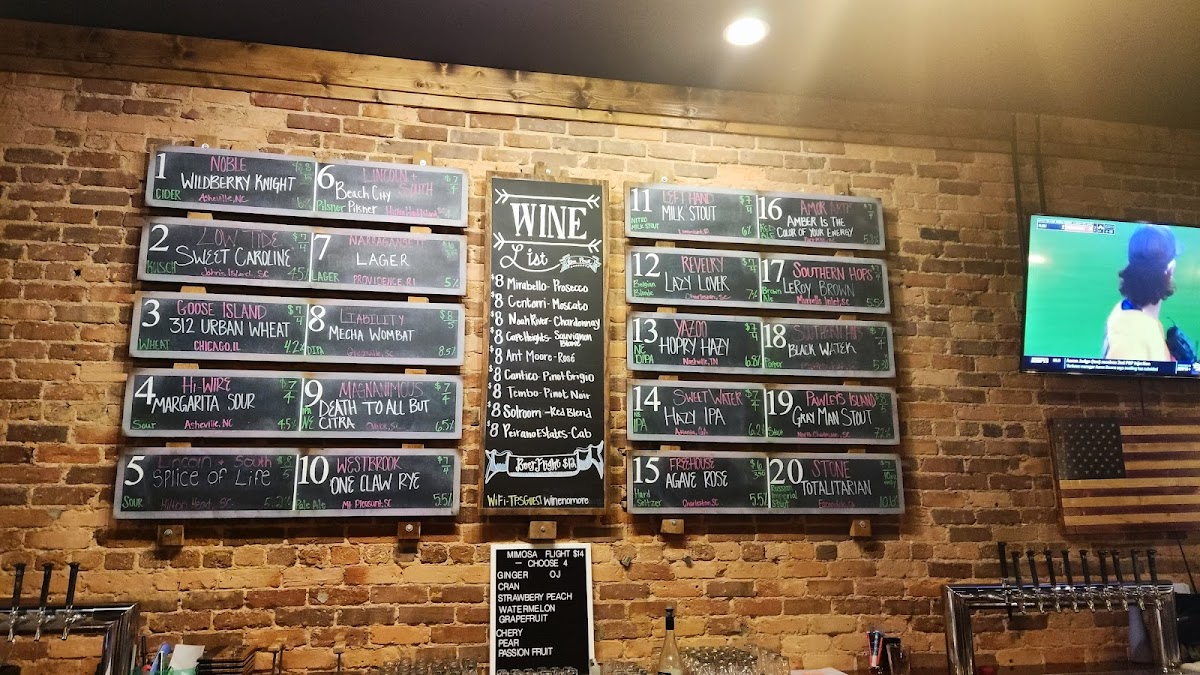 1 NOBLE
WILDBERRY KNIGHT
CIDER Asheville, NC
2 LOW TIDE $7/4
SWEET CAROLINE
KOLSCH Johns Island, SC 4.5%
3 GOOSE ISLAND $7/4
312 URBAN WHEAT
WHEAT CHICAGO, IL 4.2%
4 HI-WIRE $7/4
MARGARITA SOUR
Sour Asheville, NC 4.5%
5 Lincoln + South $8/5
SPLICE OF LIFE
SOUR Hilton Head, SC 5.2%
6 LINCOLN + SOUTH $7/4
Beach City
Pilsner Pilsner
7 NARRAGANSETT
LAGER
LAGER PROVIDENCE, RI 5%
8 LIABILITY $8/5
MECHA WOMBAT
DIPA 8.5%
9 MAGNANIMOUS $7/4
DEATH TO ALL BUT
NE IPA CITRA 6.5%
10 WESTBROOK $7/4
ONE CLAW RYE
Pale Ale Mt. Pleasant, SC 5.5%
WINE
List
$8 Mirabello- Prosecco
$8 Centorri- Moscato
$8 Noah River- Chardonnay
$8 Care Heights- Sauvignon
Blanc
$8 Ant Moore- Rosé
$8 Cantico- Pinot Grigio
$8 Tembo- Pinot Noir
$8 Solroom- Red Blend
$8 Peirano Estates- Cab
Flight $12
WiFi-TPSGUEST Winenomore
11 LEFT HAND $7/4
MILK STOUT
NITRO
MILK STOUT 6%
12 REVELRY $7/4
LAZY LOVER
Belgian
Blonde Charleston, SC
13 YAZOO $7/4
HOPRY HAZY
NE
DIPA Nashville, TN 6.8%
14 SWEET WATER $7/4
HAZY IPA
NE
IPA Atlanta, GA 6.2%
15 FREEHOUSE
AGAVE ROSE
Hard
Seltzer Charleston, SC 5.5%
16
AMBER IS THE
COLOR OF YOUR ENERGY
17 SOUTHERN HOPS
LEROY BROWN
Brown
Ale Murrells Inlet, SC 5.5%
18 SOUTHERN HOPS
BLACK WATER
Porter
19 PAWLEYS ISLAND
GRAY MAN STOUT
Stout North Charleston, SC
20 STONE $7/4
TOTALITARIAN
Russian
Imperial
Stout Escondido, CA 10.6%
MIMOSA FLIGHT $14
— CHOOSE 4
GINGER OJ
CRAN
STRAWBERY PEACH
WATERMELON
GRAPEFRUIT
CHERY
PEAR
PASSION FRUIT
ESPN